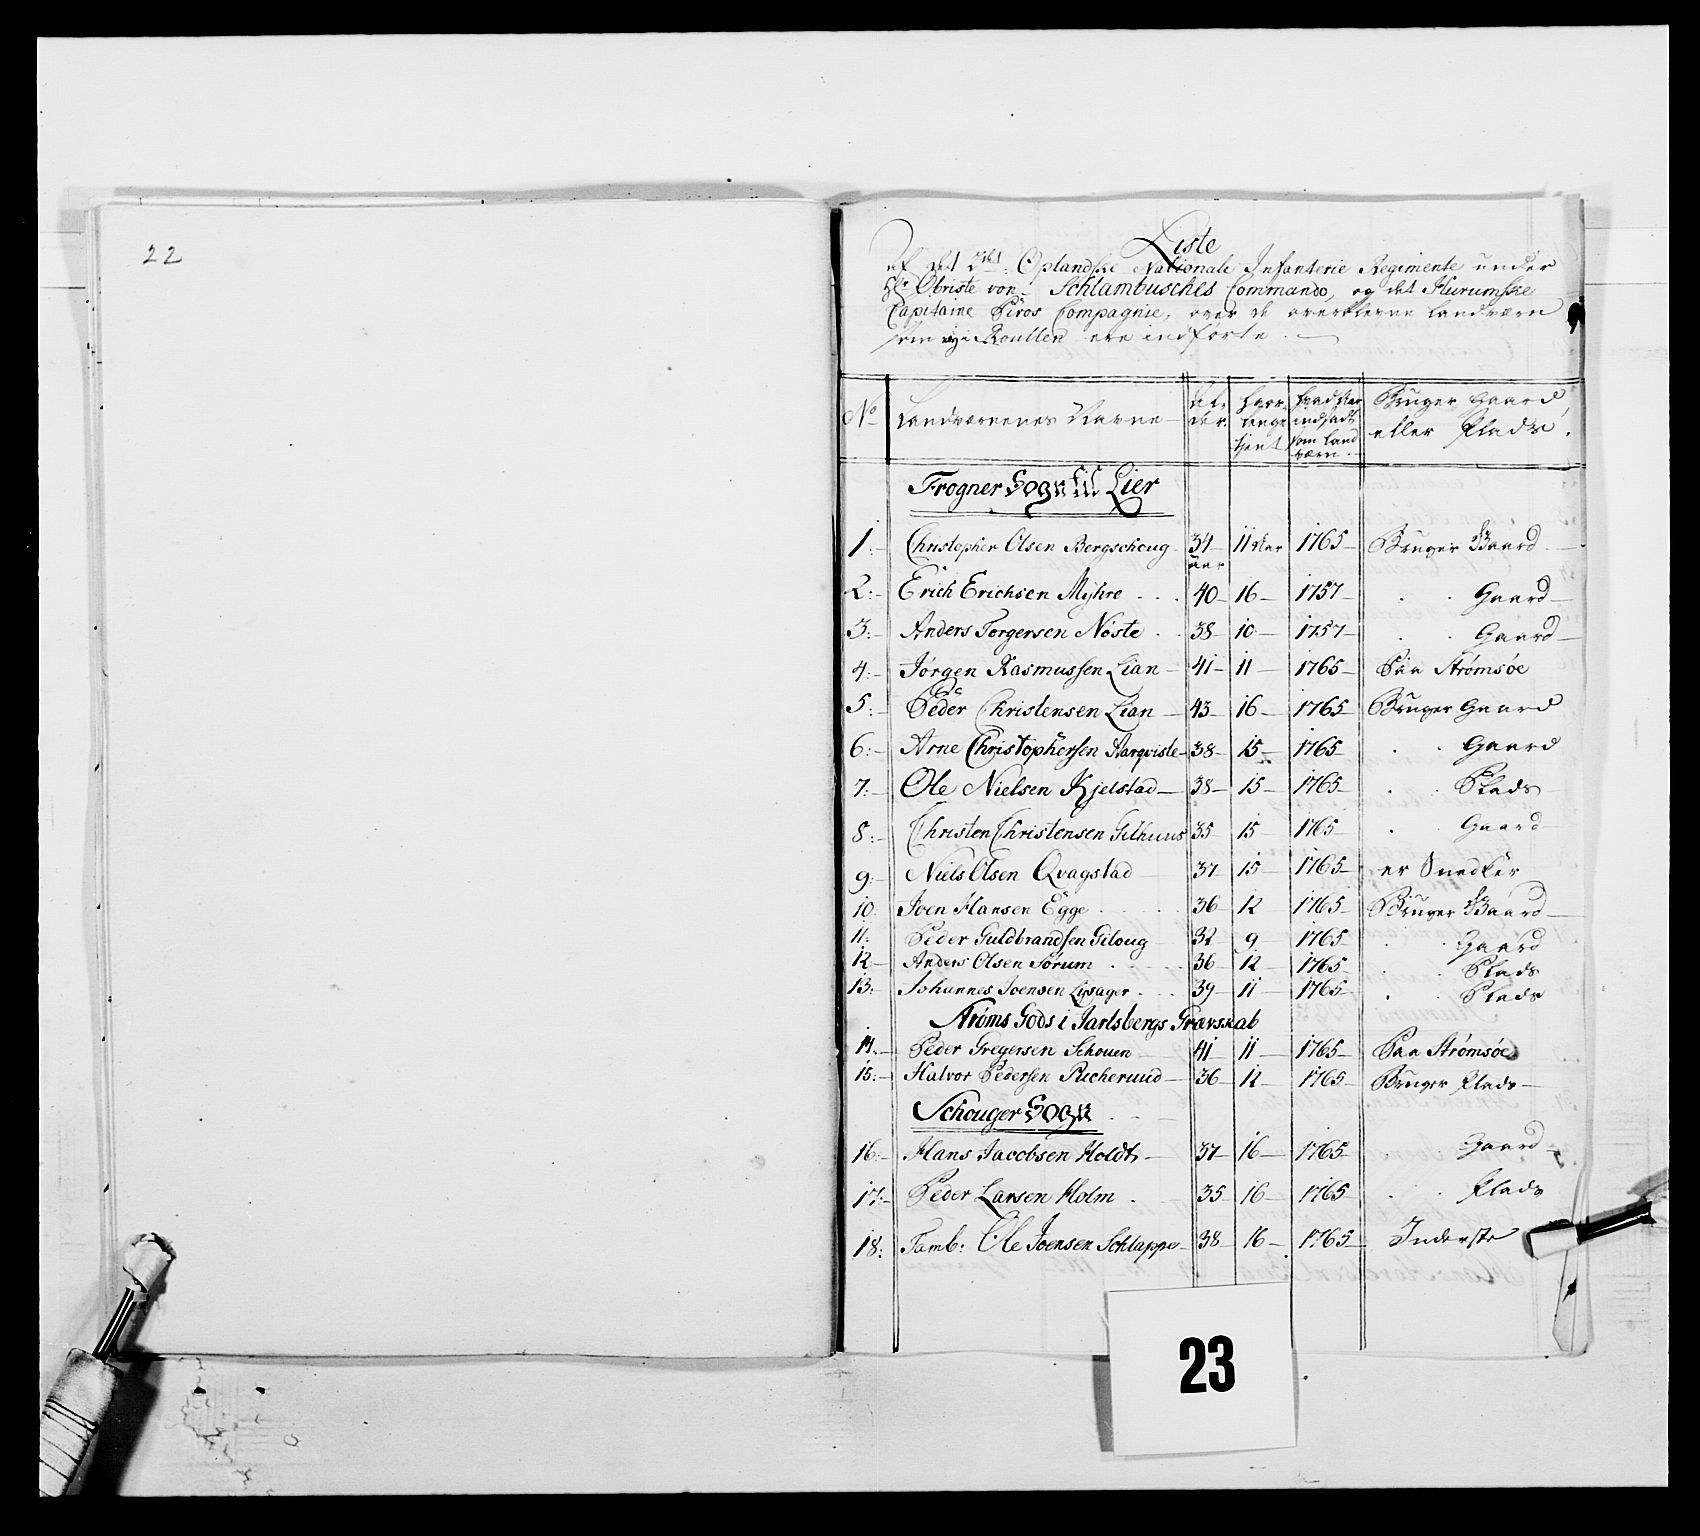 22
Liste
af det 2det Oplandske Nationale Infanterie Regimente under
Hr Obriste von Schlambusches Commando, og det Hurumske
Capitaine Piros Compagnie, over de overblevne Landværn
som i Roullen ere indførte.
No
Landværnenes Navne
Al-
der.
Hvor
lenge
tjent
hvad Aar
indsadt
som Land
værn.
Bruger Gaard
eller Plads.
Frogner Sogn til Lier
1. Christopher Olsen Bergschoug 34 aar 11 Aar 1765 Bruger Gaard
2. Erich Erichsen Myhre 40 16 1757 . . Gaard
3. Anders Torgersen Nøste 38 10 1757 . . Gaard
4. Jørgen Rasmussen Lian 41 11 1765 Paa Strømsøe
5. Peder Christensen Lian 43 16 1765 Bruger Gaard
6. Arne Christophersen Aarqvisle 38 15 1765 . . Gaard
7. Ole Nielsen Kjelstad 38 15 1765 . . Plads
8. Christen Christensen Gilhuus 35 15 1765 . . Gaard
9. Niels Olsen Qvagstad 37 15 1765 er Snedker
10. Joen Hansen Egge 36 12 1765 Bruger Gaard
11. Peder Guldbrandsen Giloug 32 9 1765 . . Gaard
12. Anders Olsen Sørum 36 12 1765 . . Plads
13. Johannes Joensen Lysager 39 11 1765 . . Plads
Strøms Gods i Jarlsbergs Grævskab
14. Peder Gregersen Schouen 41 11 1765 Paa Strømsøe
15. Halvor Pedersen Rucherund 36 12 1765 Bruger Plads
Schouger Sogn
16. Hans Jacobsen Holdt 37 16 1765 . . Gaard
17. Peder Larsen Holm 35 16 1765 . . Plads
18. Tamb: Ole Joensen Schlappe 38 16 1765 Inderste
23